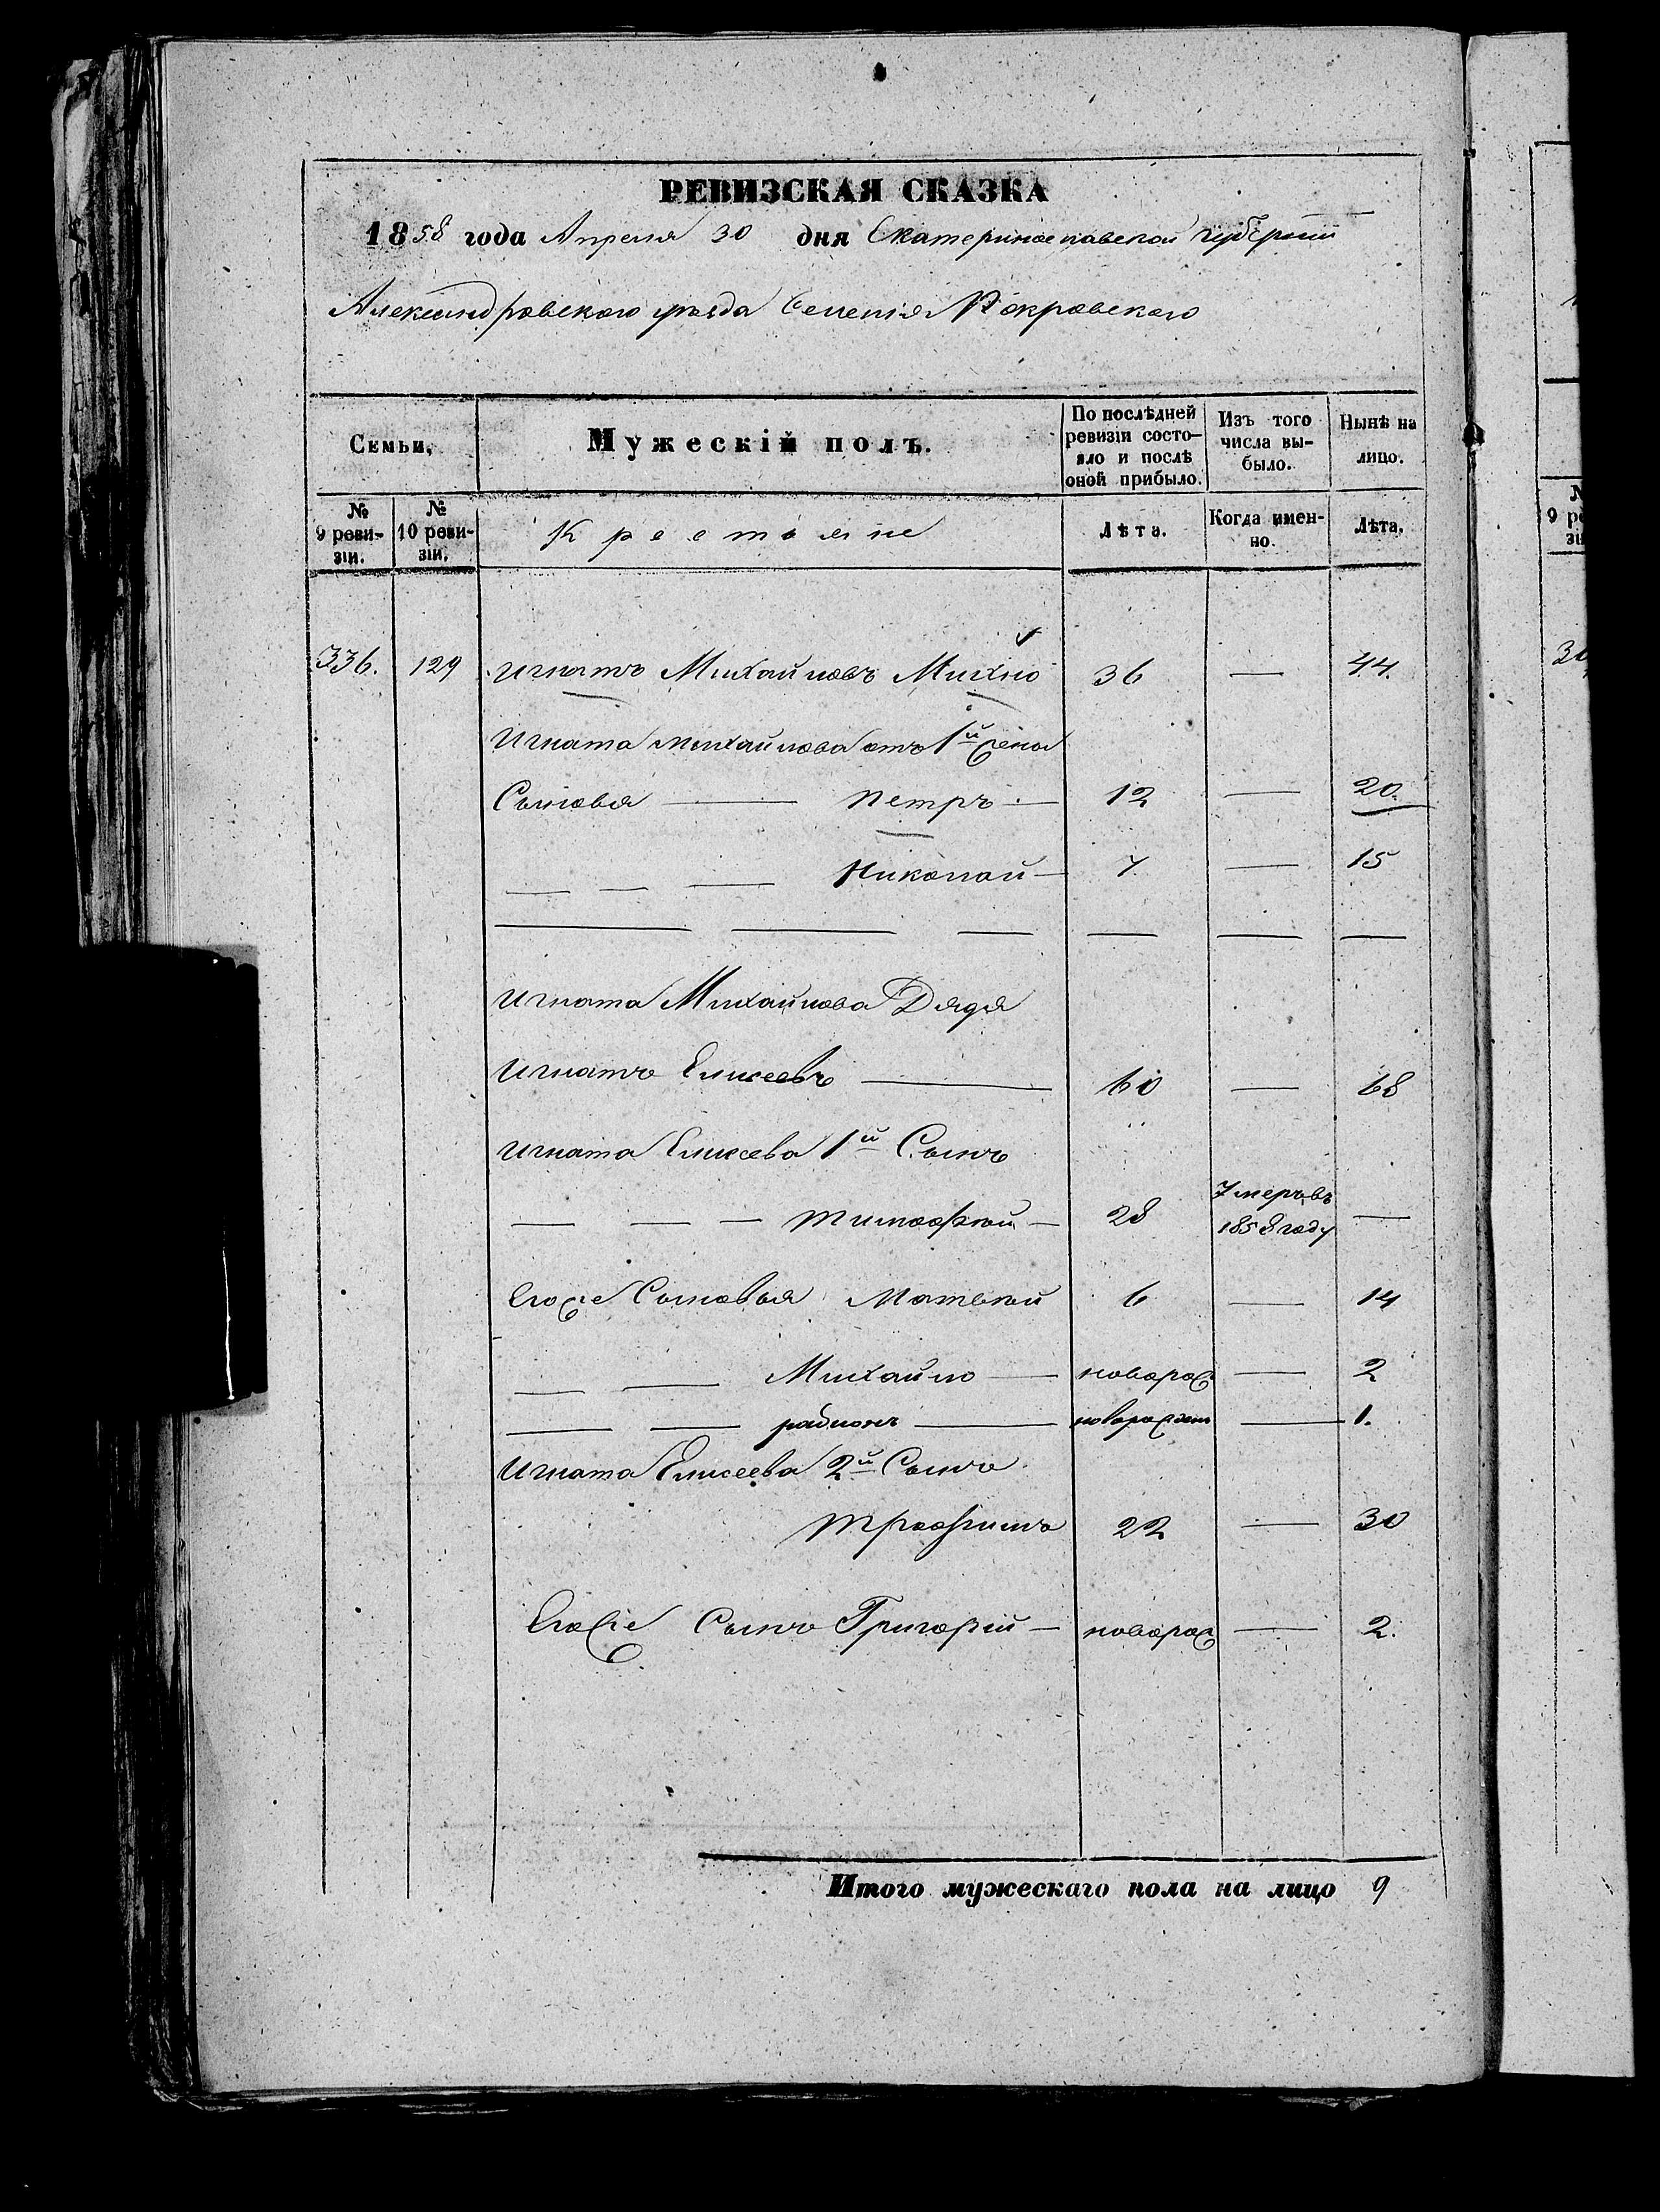 РЕВИЗСКАЯ СКАЗКА
1858 года Апреля 30 дня Екатеринославской губерніи
Александровского уѣзда Селенія Покровского
Семьи. Мужескій полъ. По послѣдней ревизіи состояло и послѣ оной прибыло. Изъ того числа выбыло. Нынѣ на лицо.
№ 9 ревизіи. № 10 ревизіи. Крестьяне Лѣта. Когда именно. Лѣта.
336. 129 Игнатъ Михайловъ Михно 36 — 44.
Игната Михайлова отъ 1й Жены
Сыновья — Петръ — 12 — 20.
— — — Николай — 7 — 15
— — — — — —
Игната Михайлова Дядя
Игнатъ Елисеевъ — 60 — 68
Игната Елисеева 1й Сынъ
— — — Тимофѣй — 28 Умеръ въ 1858 году —
Его же Сыновья Матвѣй 6 — 14
— — Михайло — новорож — 2
— — — новорожден — 1.
Игната Елисеева 2й Сынъ
Трофимъ 22 — 30
Его же Сынъ Григорій — новорож — 2.
Итого мужескаго пола на лицо 9
9 ре